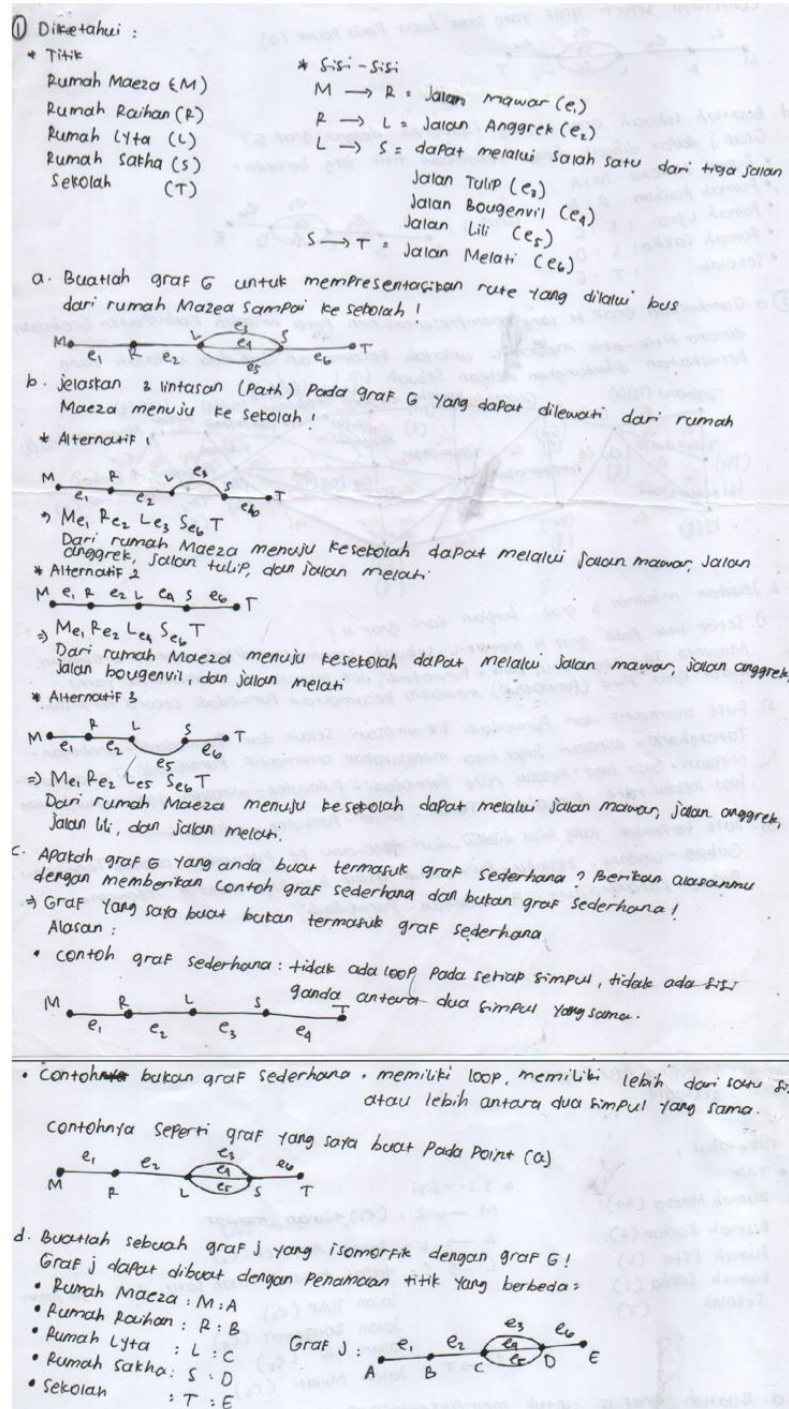 ① Diketahui :
* Titik
Rumah Maeza (M)
Rumah Raihan (R)
Rumah Lyta (L)
Rumah Sakha (S)
Sekolah (T)
* Sisi - Sisi
M → R = Jalan mawar (e1)
R → L = Jalan Anggrek (e2)
L → S = dapat melalui salah satu dari tiga jalan
Jalan Tulip (e3)
Jalan Bougenvil (e4)
Jalan Lili (e5)
S → T = Jalan Melati (e6)
a. Buatlah graf G untuk mempresentasikan rute yang dilalui bus
dari rumah Mazea sampai ke sekolah !
M e1 R e2 L e3 e4 e5 S e6 T
b. jelaskan 3 lintasan (Path) Pada graf G yang dapat dilewati dari rumah
Maeza menuju ke sekolah !
* Alternatif 1
M e1 R e2 L e3 S e6 T
⇒ Me1 Re2 Le3 Se6 T
Dari rumah Maeza menuju kesekolah dapat melalui jalan mawar, jalan
anggrek, jalan tulip, dan jalan melati
* Alternatif 2
M e1 R e2 L e4 S e6 T
⇒ Me1 Re2 Le4 Se6 T
Dari rumah Maeza menuju kesekolah dapat melalui jalan mawar, jalan anggrek,
jalan bougenvil, dan jalan melati
* Alternatif 3
M e1 R e2 L e5 S e6 T
⇒ Me1 Re2 Le5 Se6 T
Dari rumah Maeza menuju kesekolah dapat melalui jalan mawar, jalan anggrek,
jalan lili, dan jalan melati.
c. Apakah graf G yang anda buat termasuk graf sederhana ? Berikan alasanmu
dengan memberikan contoh graf sederhana dan bukan graf sederhana !
⇒ Graf yang saya buat bukan termasuk graf sederhana
Alasan :
• contoh graf sederhana : tidak ada loop pada setiap simpul, tidak ada sisi
ganda antara dua simpul yang sama.
M e1 R e2 L e3 S e4 T
• Contoh bukan graf sederhana . memiliki loop, memiliki lebih dari satu
atau lebih antara dua simpul yang sama.
Contohnya seperti graf yang saya buat pada point (a)
M e1 R e2 L e3 e4 e5 S e6 T
d. Buatlah sebuah graf j yang isomorfik dengan graf G !
Graf j dapat dibuat dengan Penamaan titik yang berbeda :
• Rumah Maeza : M : A
• Rumah Raihan : R : B
• Rumah Lyta : L : C
• Rumah Sakha : S : D
• Sekolah : T : E
Graf J : A e1 B e2 C e3 e4 e5 D e6 E